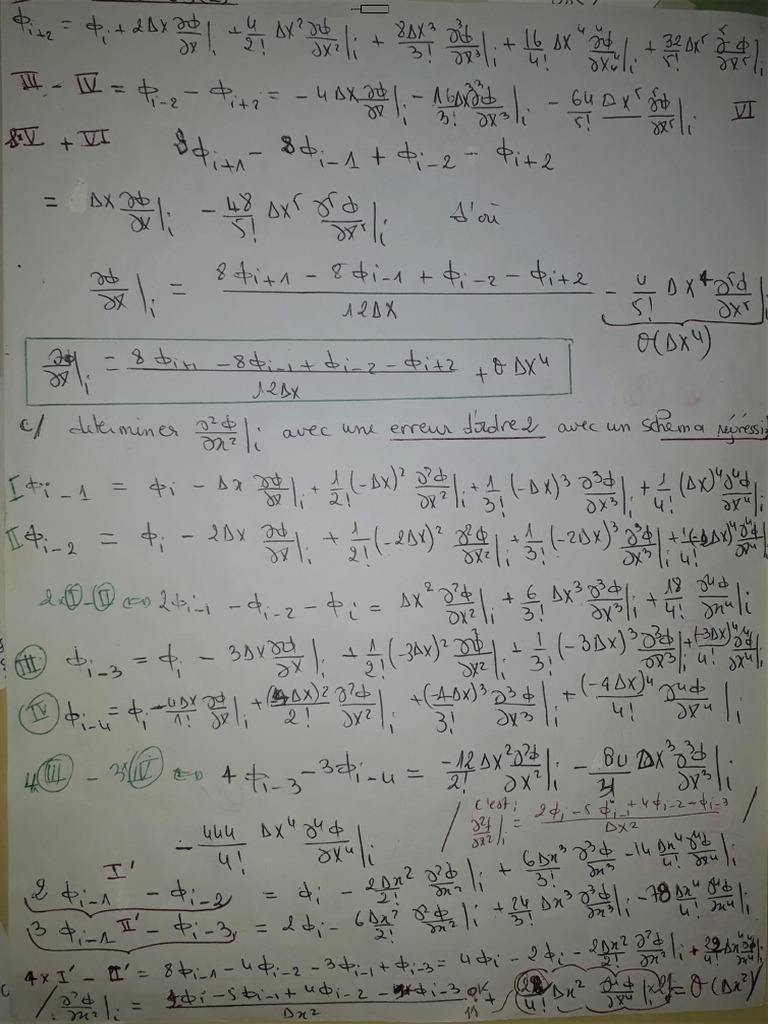 ϕi+2 = ϕi + 2Δx ∂ϕ/∂x|i + 4/2! Δx² ∂²ϕ/∂x²|i + 8Δx³/3! ∂³ϕ/∂x³|i + 16/4! Δx⁴ ∂⁴ϕ/∂x⁴|i + 32/5! Δx⁵ ∂⁵ϕ/∂x⁵|i
III - IV = ϕi-2 - ϕi+2 = -4Δx ∂ϕ/∂x|i - 16Δx³/3! ∂³ϕ/∂x³|i - 64/5! Δx⁵ ∂⁵ϕ/∂x⁵|i VI
8*V + VI 8ϕi+1 - 8ϕi-1 + ϕi-2 - ϕi+2
= Δx ∂ϕ/∂x|i - 48/5! Δx⁵ ∂⁵ϕ/∂x⁵|i d'où
∂ϕ/∂x|i = (8ϕi+1 - 8ϕi-1 + ϕi-2 - ϕi+2)/12Δx - 4/5! Δx⁴ ∂⁵ϕ/∂x⁵|i
θ(Δx⁴)
∂ϕ/∂x|i = (8ϕi+1 - 8ϕi-1 + ϕi-2 - ϕi+2)/12Δx + θ Δx⁴
c/ determiner ∂²ϕ/∂x²|i avec une erreur d'ordre 2 avec un schema régressif
I ϕi-1 = ϕi - Δx ∂ϕ/∂x|i + 1/2! (-Δx)² ∂²ϕ/∂x²|i + 1/3! (-Δx)³ ∂³ϕ/∂x³|i + 1/4! (Δx)⁴ ∂⁴ϕ/∂x⁴|i
II ϕi-2 = ϕi - 2Δx ∂ϕ/∂x|i + 1/2! (-2Δx)² ∂²ϕ/∂x²|i + 1/3! (-2Δx)³ ∂³ϕ/∂x³|i + 1/4! (-2Δx)⁴ ∂⁴ϕ/∂x⁴|i
2×I-II ⇔ 2ϕi-1 - ϕi-2 - ϕi = Δx² ∂²ϕ/∂x²|i + 6/3! Δx³ ∂³ϕ/∂x³|i + 18/4! ∂⁴ϕ/∂x⁴|i
III ϕi-3 = ϕi - 3Δx ∂ϕ/∂x|i + 1/2! (-3Δx)² ∂²ϕ/∂x²|i + 1/3! (-3Δx)³ ∂³ϕ/∂x³|i + (-3Δx)⁴/4! ∂⁴ϕ/∂x⁴|i
IV ϕi-4 = ϕi - 4Δx/1! ∂ϕ/∂x|i + (4Δx)²/2! ∂²ϕ/∂x²|i + (-4Δx)³/3! ∂³ϕ/∂x³|i + (-4Δx)⁴/4! ∂⁴ϕ/∂x⁴|i
4III - 3*IV ⇔ 4ϕi-3 - 3ϕi-4 = -12/2! Δx² ∂²ϕ/∂x²|i - Δx³ ∂³ϕ/∂x³|i
- 444/4! Δx⁴ ∂⁴ϕ/∂x⁴|i
/ c'est: ∂²f/∂x²|i = (2ϕi - 5ϕi-1 + 4ϕi-2 - ϕi-3)/Δx² /
I'
2ϕi-1 - ϕi-2 = ϕi - 2Δx²/2! ∂²ϕ/∂x²|i + 6Δx³/3! ∂³ϕ/∂x³ - 14Δx⁴/4! ∂⁴ϕ/∂x⁴|i
3ϕi-1 - ϕi-3 = 2ϕi - 6Δx²/2! ∂²ϕ/∂x²|i + 24/3! Δx³ ∂³ϕ/∂x³|i - 78Δx⁴/4! ∂⁴ϕ/∂x⁴|i
II'
4×I' - II' = 8ϕi-1 - 4ϕi-2 - 3ϕi-1 + ϕi-3 = 4ϕi - 2ϕi - 2Δx²/2! ∂²ϕ/∂x²|i + 22/4! Δx⁴ ∂⁴ϕ/∂x⁴|i
∂²ϕ/∂x²|i = ϕi - 5ϕi-1 + 4ϕi-2 - ϕi-3 /Δx² OK + /4! Δx² ∂⁴ϕ/∂x⁴|i = θ(Δx²)